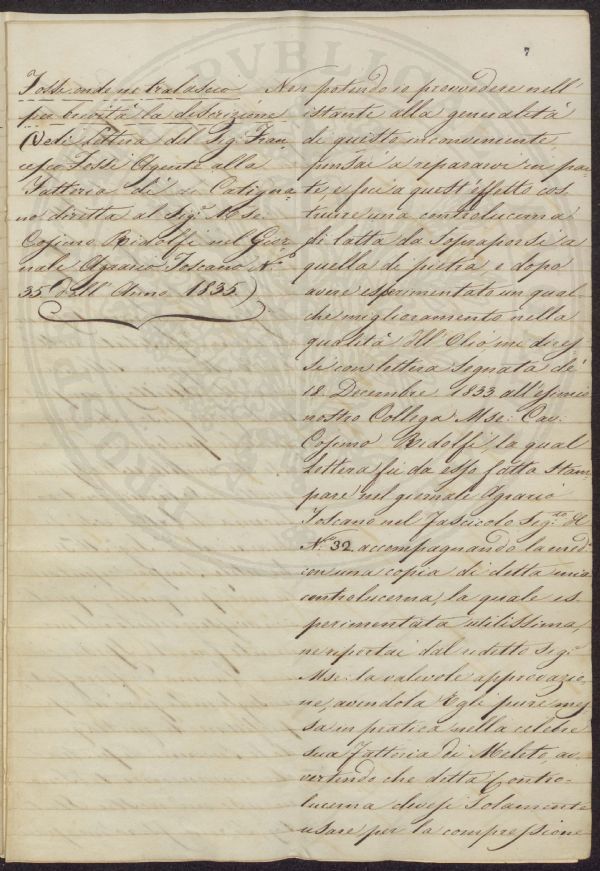 7
Fossi onde ne tralascio
per brevità la discrizione
(Vedi Lettera del Sig.r Fran=
cesco Fossi Agente alla
Fattoria di
no diretta al Sig.r M.se
Cosimo Ridolfi nel Gior
nale Agrario Toscano N.o
35 dell' Anno 1835)
Non potendo io provvedere nell'
istante alla generalità
di questo inconveniente,
pensai a repararvi in par
te, e feci a quest'effetto cos
truire una controlucerna
di latta da soprapporsi a
quella di pietra, e dopo
avere esperimentato un qual
che miglioramento nella
qualità dell' Olio me dires
si con lettera segnata de'
18. Decembre 1833 all'esimio
nostro Collega M.se: Cav:
Cosimo Ridolfi, la qual
Lettera fu da esso fatta Stam
pare nel giornale Agrario
Toscano nel Fascicolo Seg.to di
N.o 32. accompagnando la med.a
con una copia di detta mia
controlucerna, la quale es
perimentata utilissima,
ne reportai dal sudetto Sig.r
M.se: la valevole approvazio
ne, avendola Egli pure mes
sa in pratica nella celebre
sua Fattoria di Meleto, av
vertendo che detta Contro=
lucerna devesi Solamente
usare per la compressione